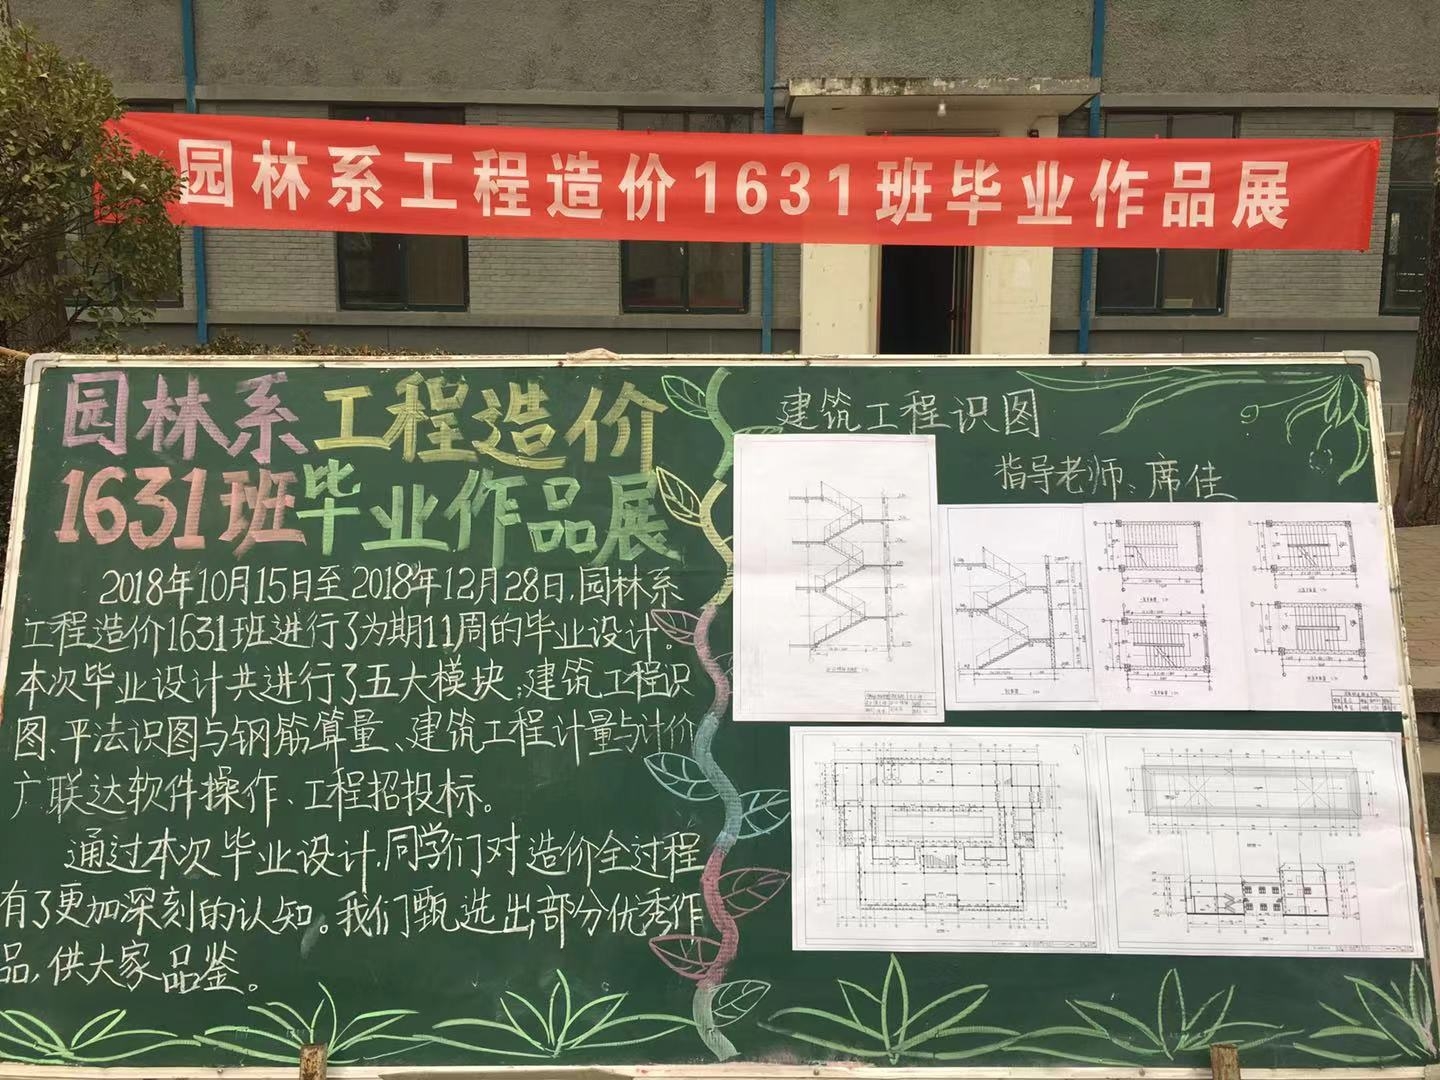 园林系工程造价1631班毕业作品展
园林系工程造价
1631班毕业作品展
2018年10月15日至2018年12月28日,园林系
工程造价1631班进行了为期11周的毕业设计。
本次毕业设计共进行了五大模块:建筑工程识
图、平法识图与钢筋算量、建筑工程计量与计价
广联达软件操作、工程招投标。
通过本次毕业设计,同学们对造价全过程
有了更加深刻的认知。我们甄选出部分优秀作
品,供大家品鉴。
建筑工程识图
指导老师:席佳